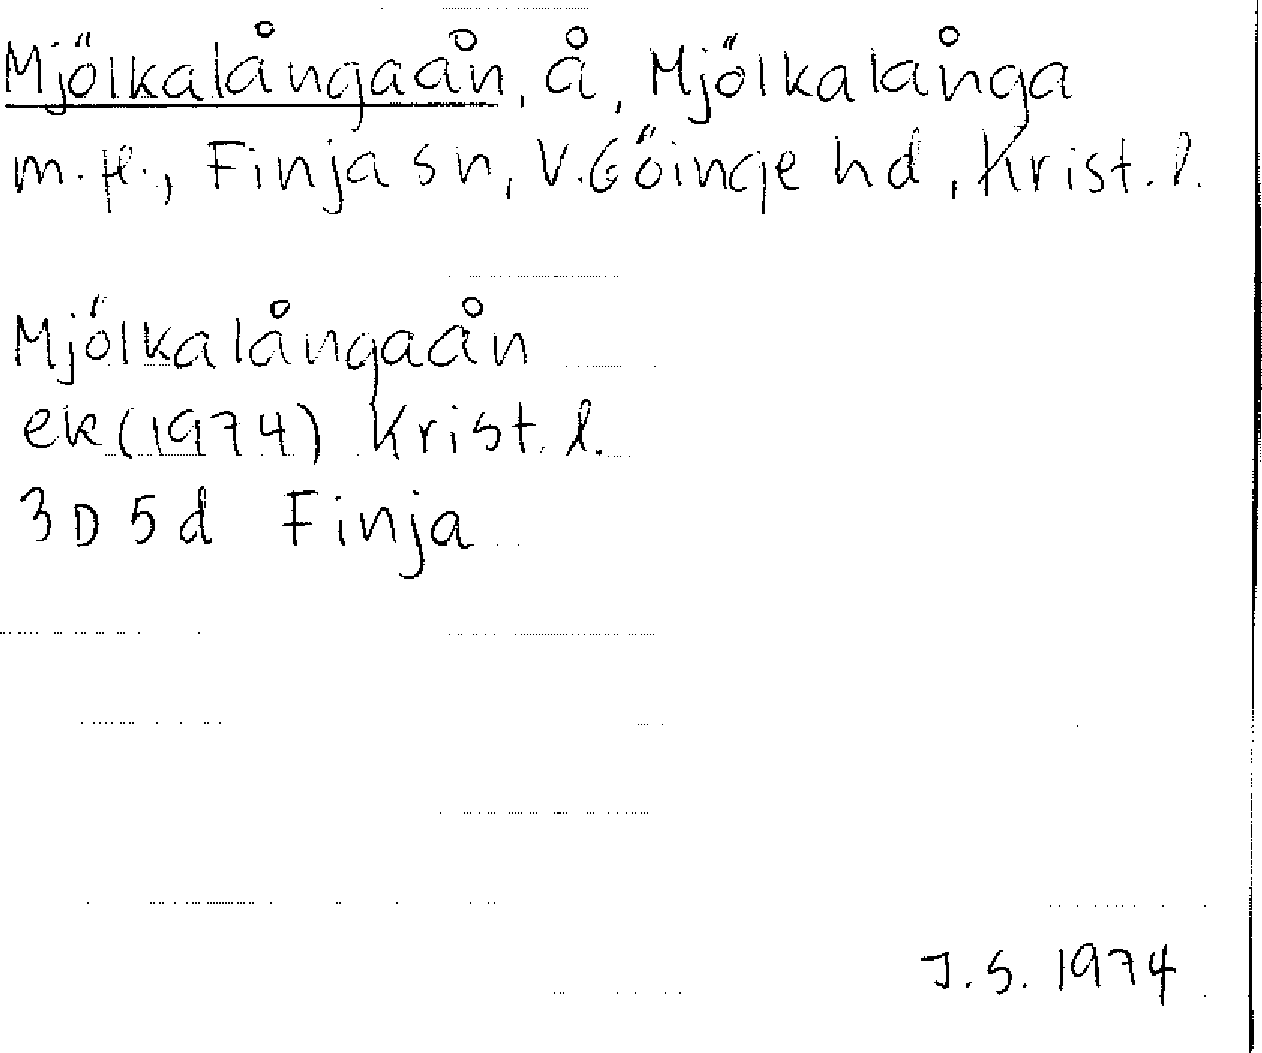 Mjölkalångaån, å, Mjölkalånga
m. fl., Finja sn, V. Göinge hd, Krist. l.
Mjölkalångaån
ek (1974) Krist. l.
3D 5d Finja
J.S. 1974